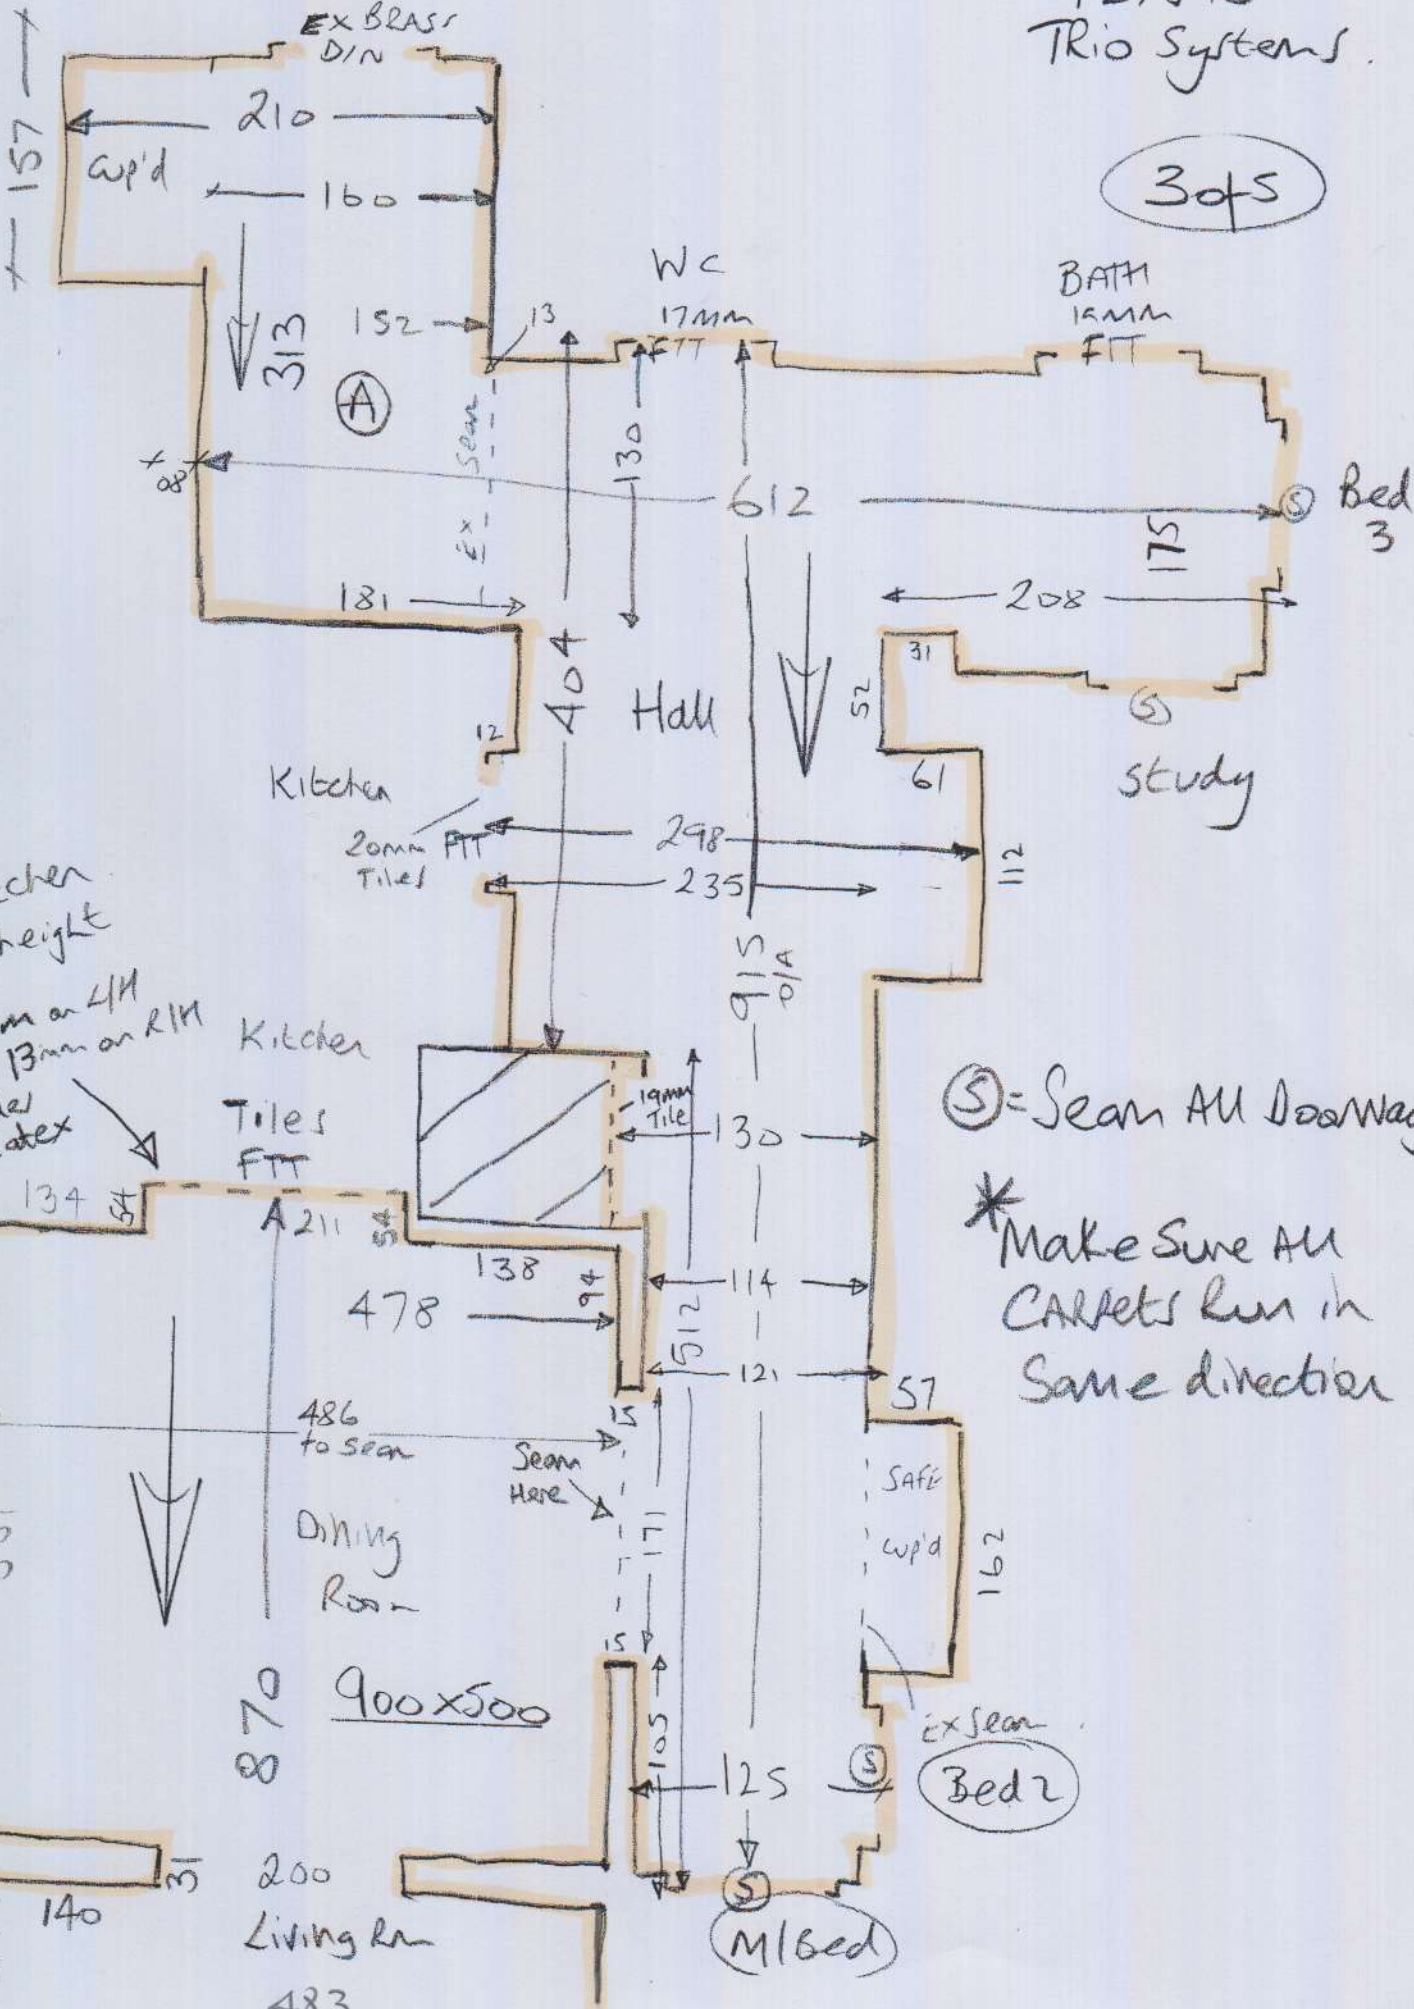 EX BRASS
D/N
Trio Systems.
3 of 5
157
210
Cup'd
160
313
152
13
A
Ex Seam
WC
17mm
FTT
BATH
19mm
FTT
130
08
612
S
Bed
3
175
181
208
404
31
52
Hall
12
61
S
Study
Kitchen
20mm FTT
Tiles
298
235
112
915
O/A
height
m on L/H
13mm on R/H
Kitchen
Tiles
FTT
19mm
Tile
130
S = Seam All Doorway
134
54
211
54
138
94
478
114
512
121
57
* Make Sure All
CARPETS Run in
Same direction
486
to seam
15
Seam
Here
171
SAFE
Cup'd
162
Dining
Room
15
870
900x500
105
Ex Seam
125
S
Bed 2
31
200
140
Living Rm
S
M/Bed
483